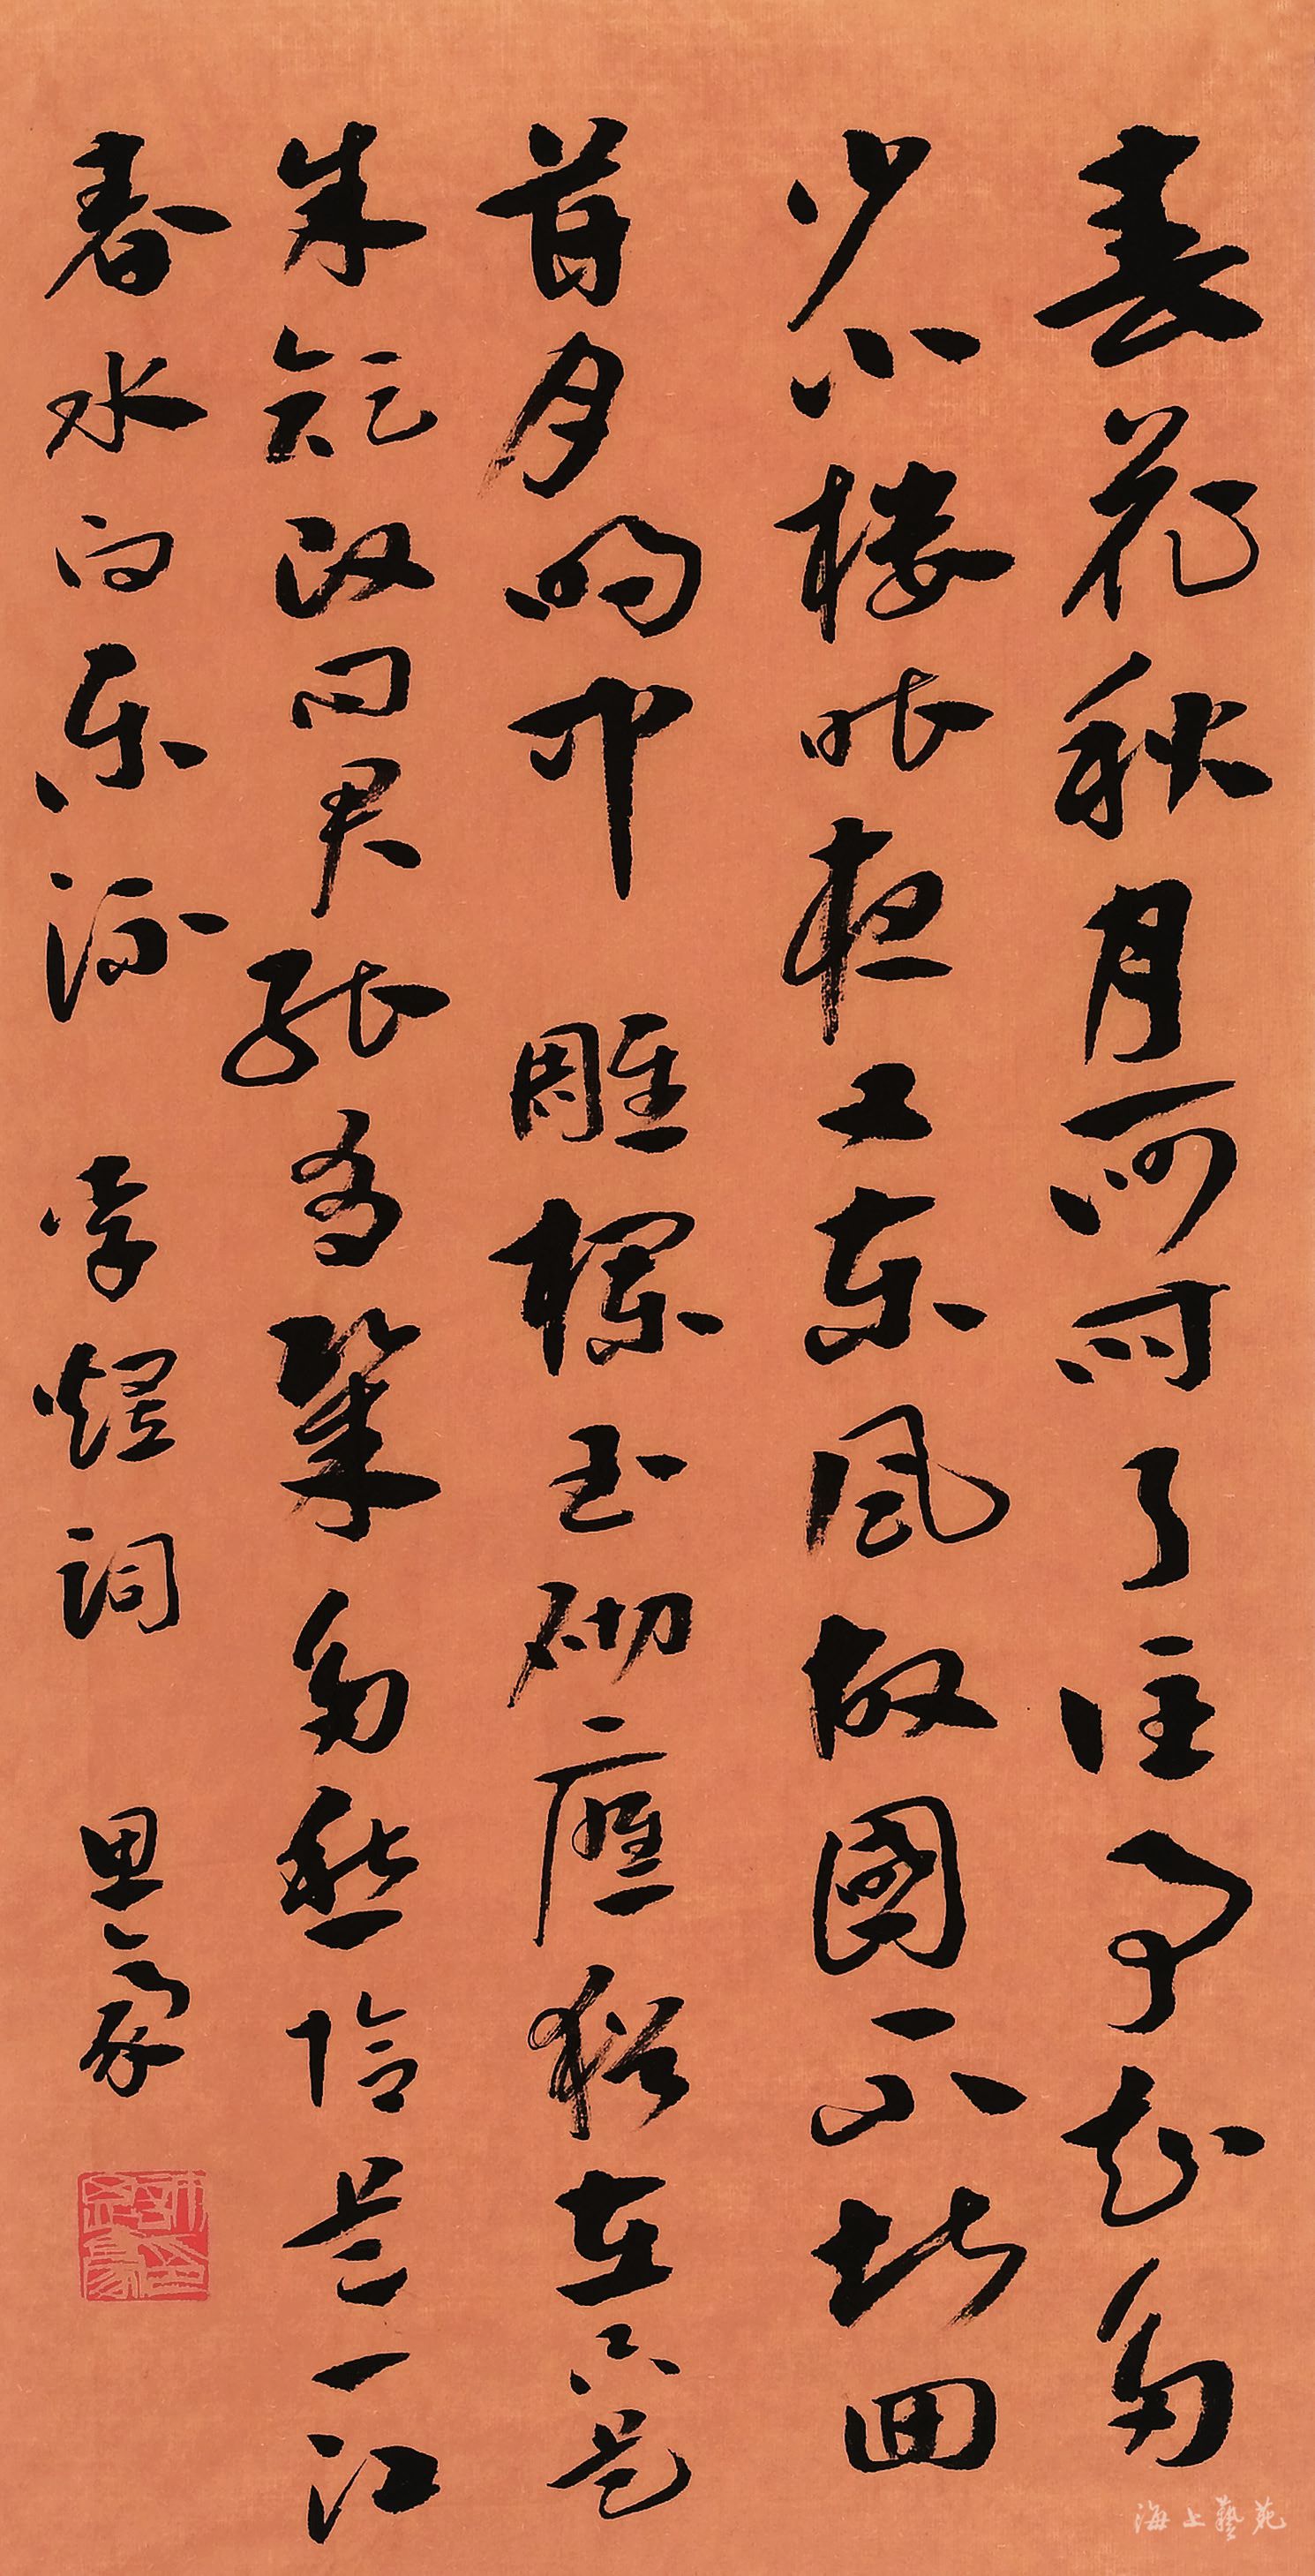 春花秋月何時了往事知多
少小樓昨夜又東風故國不堪回
首月明中 雕欄玉砌應猶在只是
朱顏改問君能有幾多愁恰是一江
春水向東流 李煜詞 思豪
許思豪印
海上藝苑